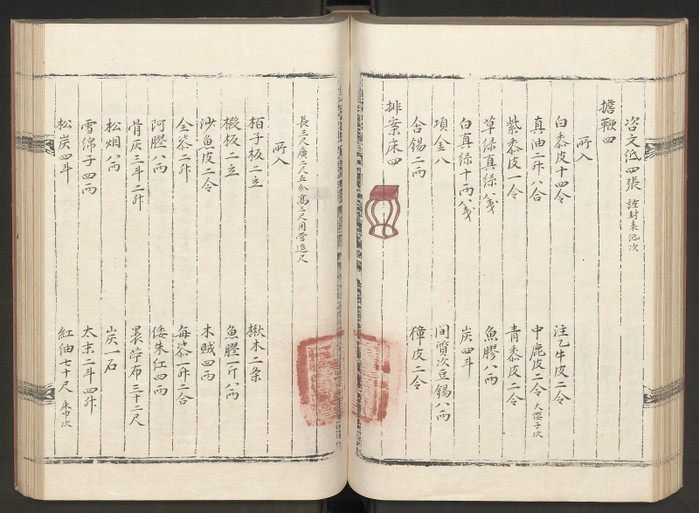 咨文紙四張 謹封表紙次
擔鞭四
所入
白黍皮十四令 注乙牛皮二令
真油二升八合 中鹿皮二令 大纓子次
紫黍皮一令 青黍皮二令
草綠真絲八戔 魚膠八兩
白真絲十兩八戔 炭四斗
項金八 間質次豆錫八兩
含錫二兩 獐皮二令
排案床四
長三尺廣二尺五分高三尺用營造尺
所入
栢子板二立 楸木二条
椴板二立 魚膠一斤八兩
沙魚皮二令 木賊四兩
全漆二升 每漆一升二合
阿膠八兩 倭朱紅四兩
骨灰三斗二升 布三十二尺
松烟八兩 炭一石
雪綿子四兩 太末二斗四升
松炭四斗 紅紬七十尺 床巾次